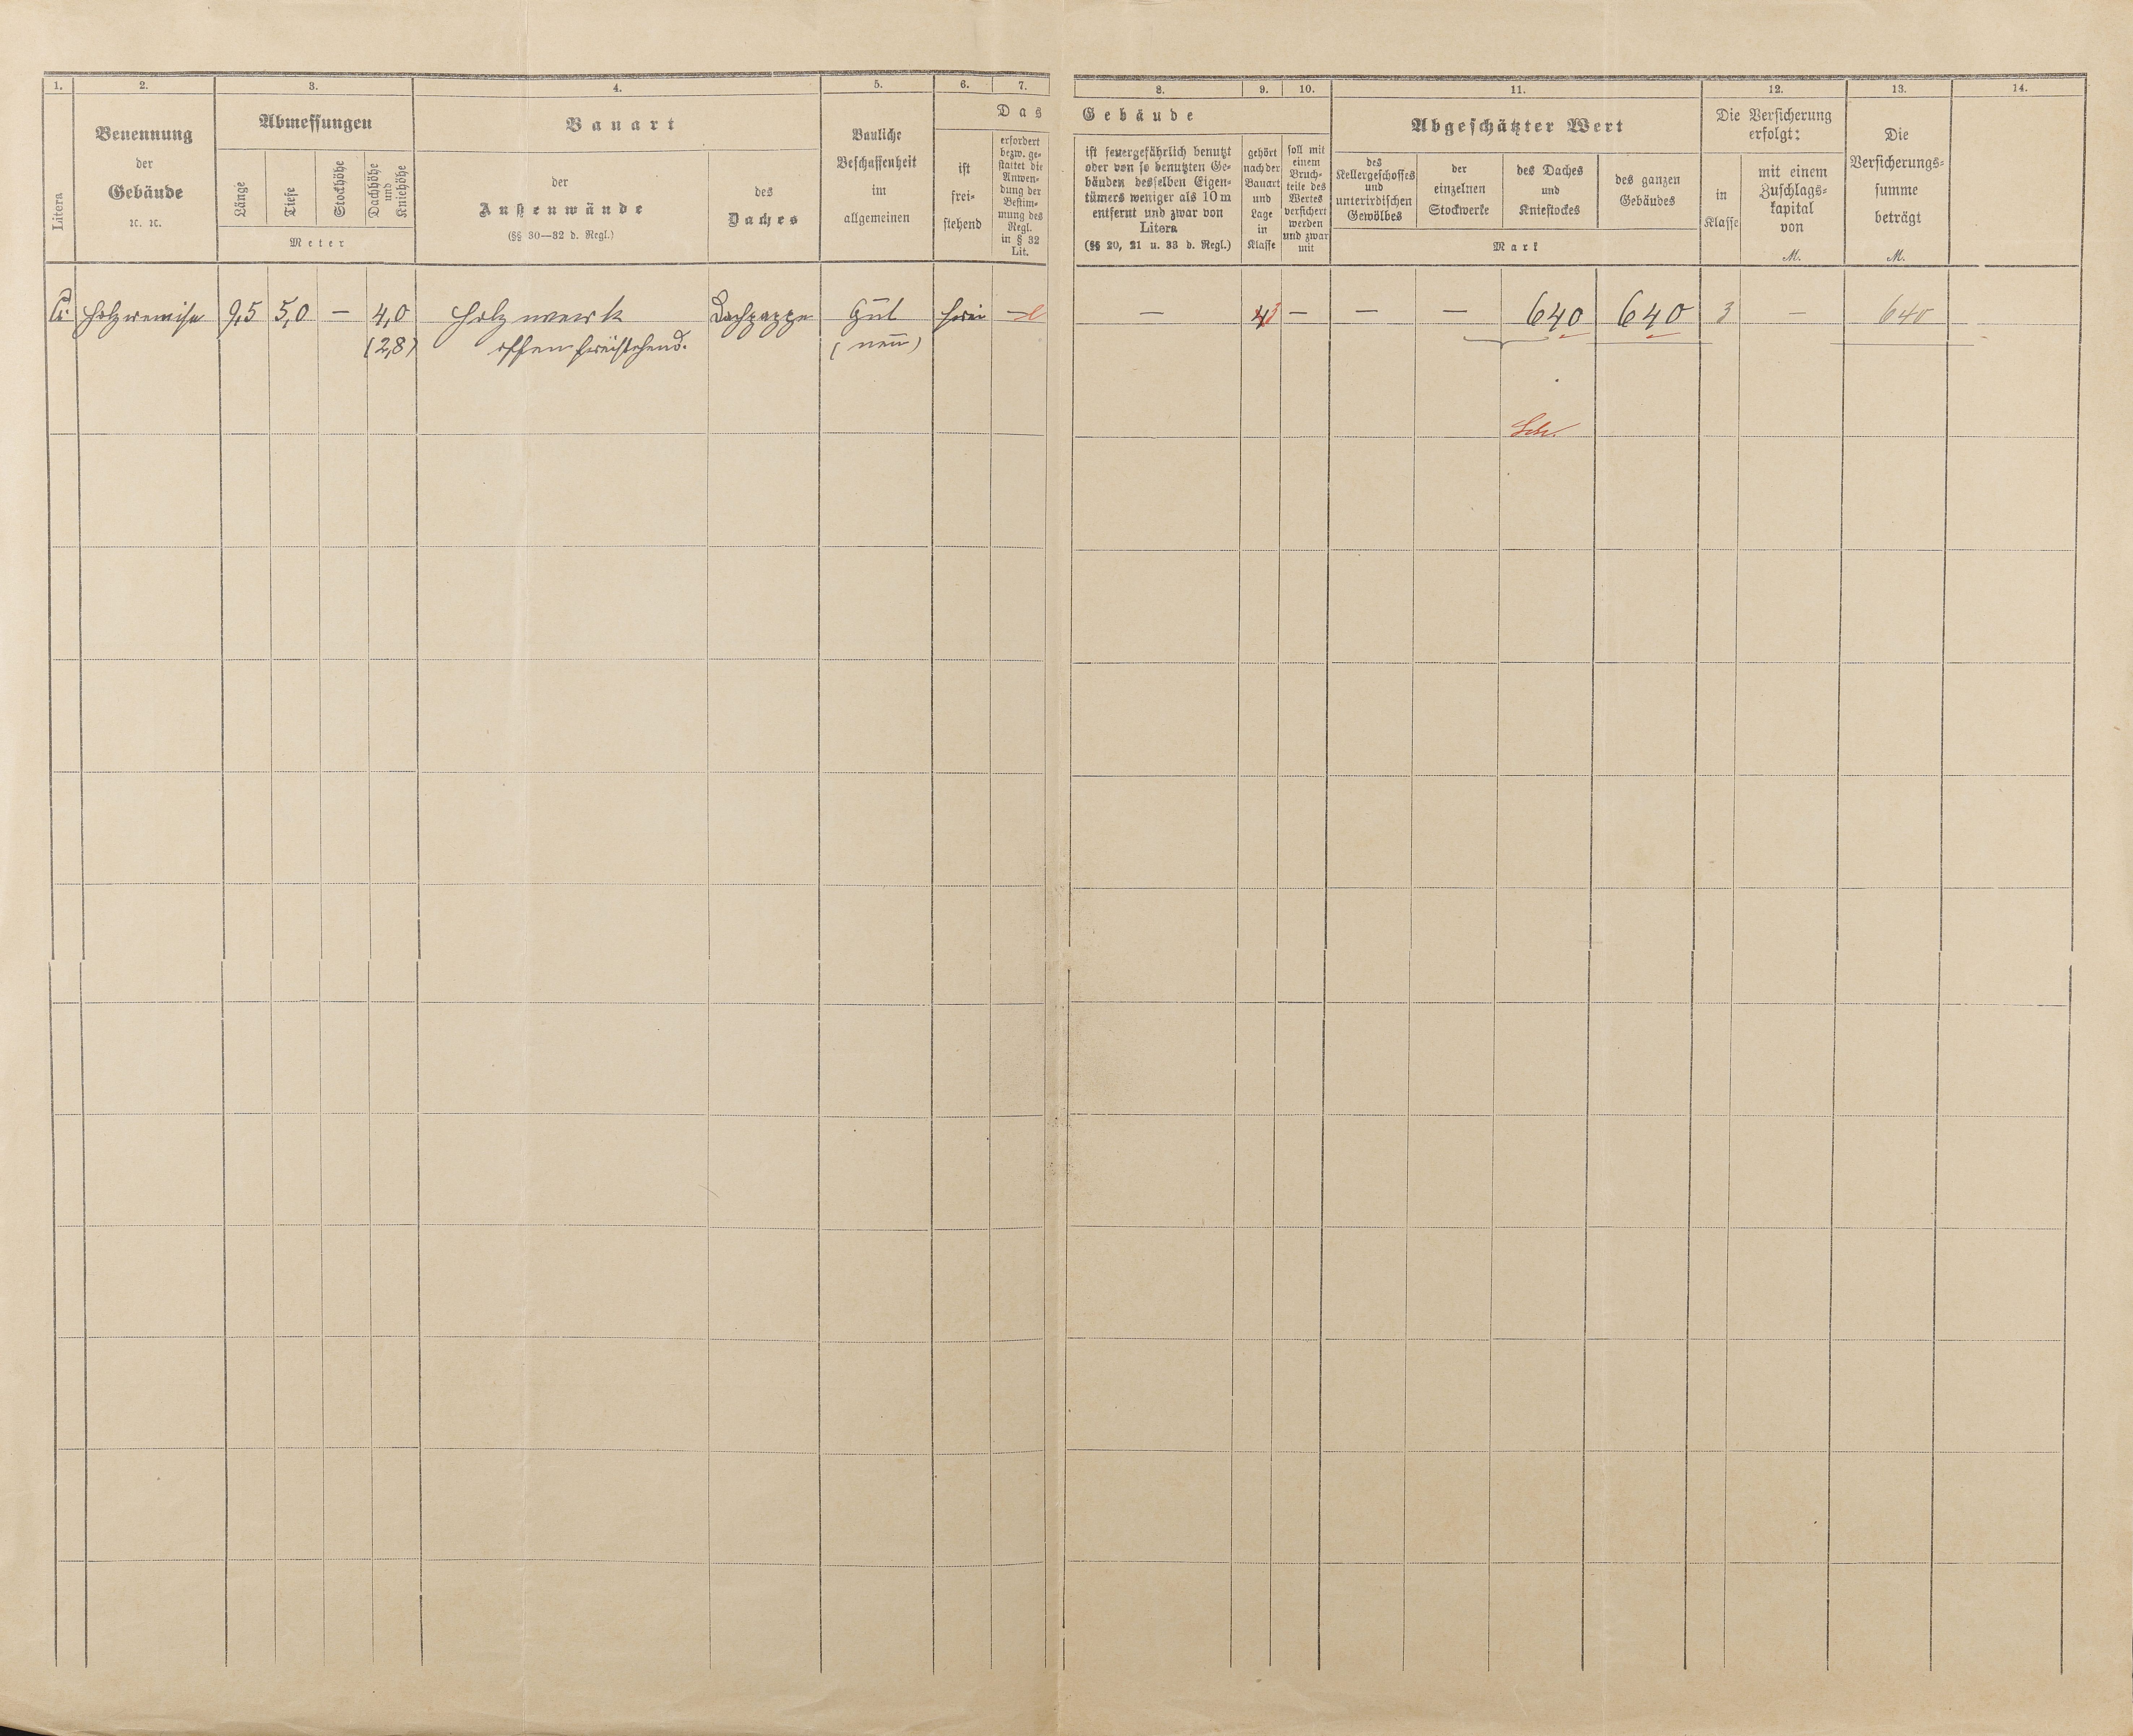 1. 2. 3. 4. 5. 6. 7. 8. 9. 10. 11. 12. 13. 14.
Litera
Benennung
der
Gebäude
ꝛc. ꝛc.
Abmessungen
Länge
Tiefe
Stockhöhe
Dachhöhe
und
Kniehöhe
Meter
Bauart
der
Außenwände
(§§ 30—32 d. Regl.)
des
Daches
Bauliche
Beschaffenheit
im
allgemeinen
Das Gebäude
ist
frei-
stehend
erfordert
bezw. ge-
stattet die
Anwen-
dung der
Bestim-
mung des
Regl.
in § 32
Lit.
ist feuergefährlich benutzt
oder von so benutzten Ge-
bäuden desselben Eigen-
tümers weniger als 10 m
entfernt und zwar von
Litera
(§§ 20, 21 u. 33 d. Regl.)
gehört
nach der
Bauart
und
Lage
in
Klasse
soll mit
einem
Bruch-
teile des
Wertes
versichert
werden
und zwar
mit
Abgeschätzter Wert
des
Kellergeschosses
und
unterirdischen
Gewölbes
der
einzelnen
Stockwerke
des Daches
und
Kniestockes
des ganzen
Gebäudes
Mark
Die Versicherung
erfolgt:
in
Klasse
mit einem
Zuschlags-
kapital
von
M.
Die
Versicherungs-
summe
beträgt
M.
Holzremise 9,5 5,0 — 4,0 Holzwerk Dachpappe gut frei — — 3 — — — 640 640 3 — 640
(2,8) offen freistehend. (neu)